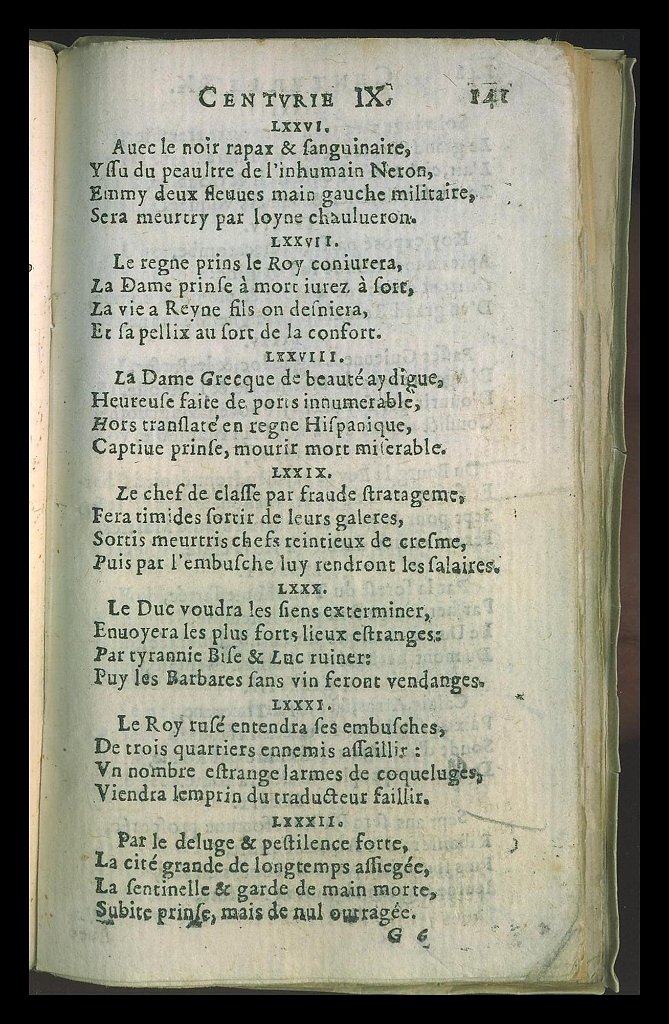 CENTVRIE IX. 141
LXXVI.
Auec le noir rapax & ſanguinaire,
Yſſu du peaultre de l'inhumain Neron,
Emmy deux fleuues main gauche militaire,
Sera meurtry par Ioyne chaulueron.
LXXVII.
Le regne prins le Roy coniurera,
La Dame prinſe à mort iurez à ſort,
La vie a Reyne fils on deſniera,
Et ſa pellix au ſort de la confort.
LXXVIII.
La Dame Grecque de beauté aydigue,
Heureuſe faite de ports innumerable,
Hors tranſlaté en regne Hiſpanique,
Captiue prinſe, mourir mort miſerable.
LXXIX.
Le chef de claſſe par fraude ſtratageme,
Fera timides ſortir de leurs galeres,
Sortis meurtris chefs reintieux de creſme,
Puis par l'embuſche luy rendront les ſalaires.
LXXX.
Le Duc voudra les ſiens exterminer,
Enuoyera les plus forts lieux eſtranges:
Par tyrannie Biſe & Luc ruiner:
Puy les Barbares ſans vin feront vendanges.
LXXXI.
Le Roy ruſé entendra ſes embuſches,
De trois quartiers ennemis aſſaillir :
Vn nombre eſtrange larmes de coqueluges,
Viendra lemprin du traducteur faillir.
LXXXII.
Par le deluge & peſtilence forte,
La cité grande de longtemps aſſiegée,
La ſentinelle & garde de main morte,
Subite prinſe, mais de nul outragée.
G 6